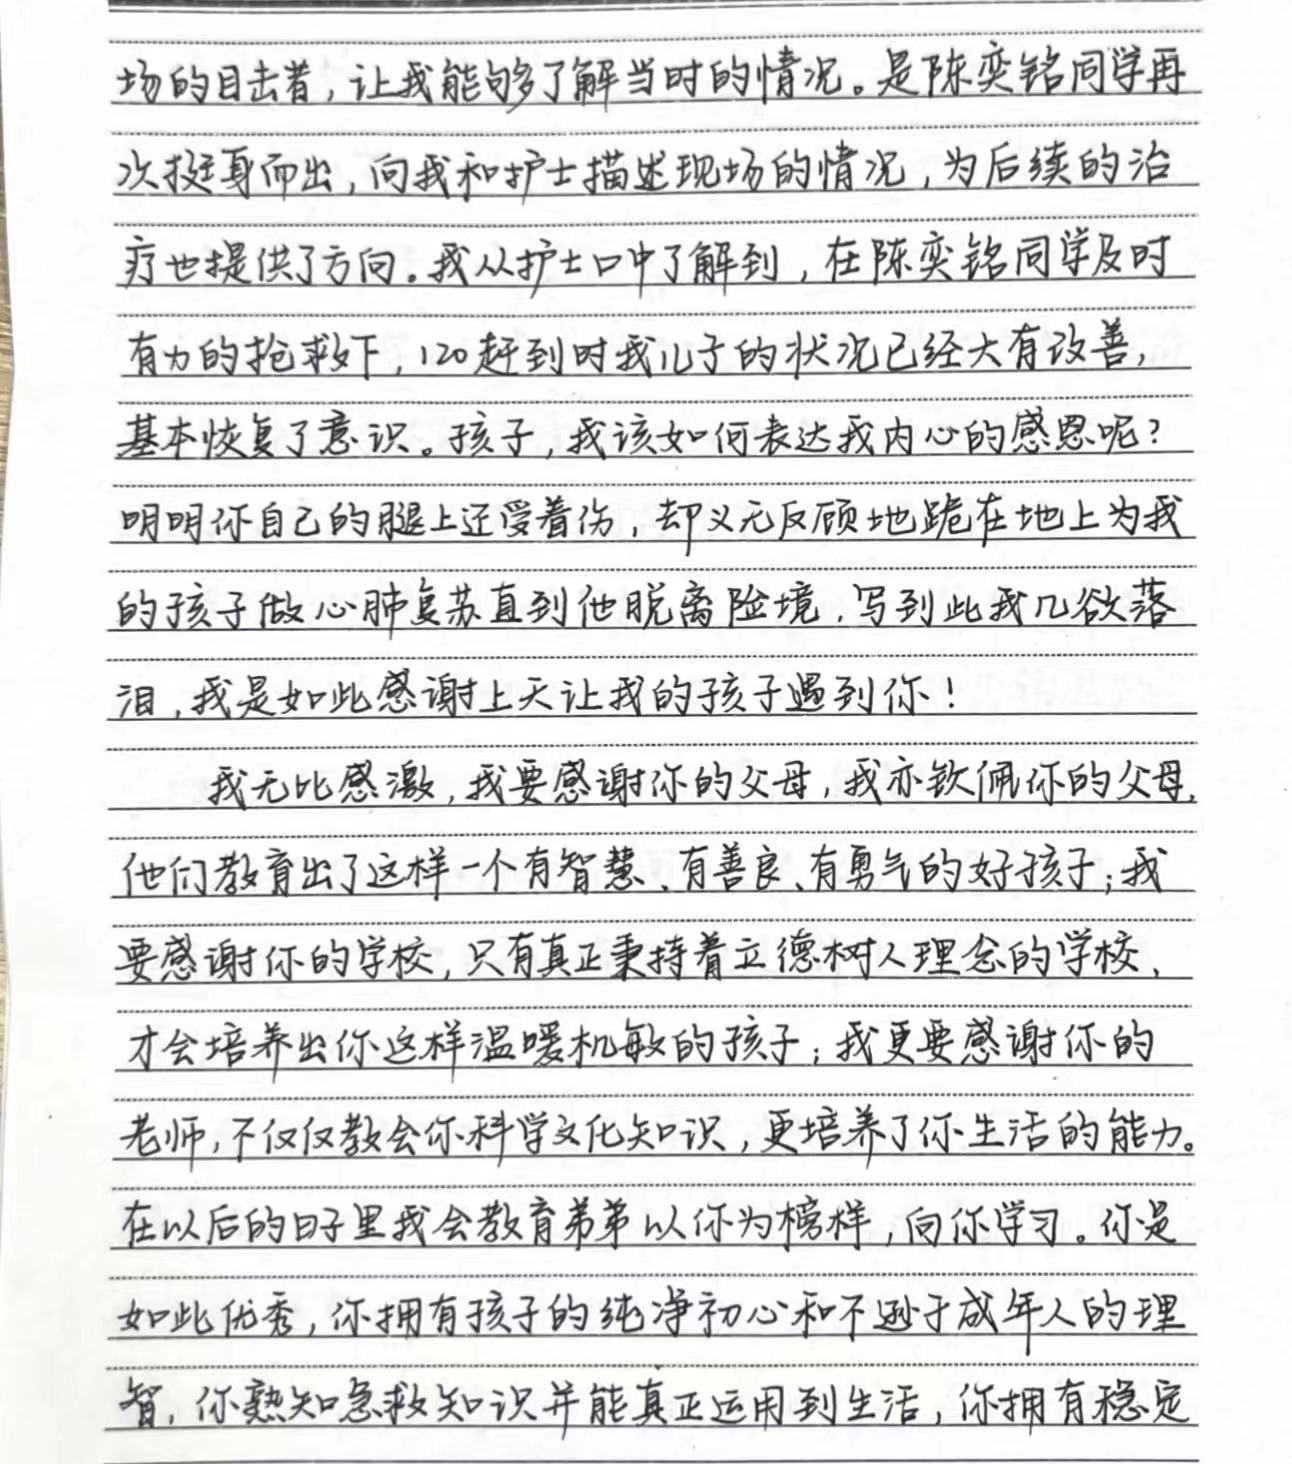 场的目击者，让我能够了解当时的情况。是陈奕铭同学再
次挺身而出，向我和护士描述现场的情况，为后续的治
疗也提供了方向。我从护士口中了解到，在陈奕铭同学及时
有力的抢救下，120赶到时我儿子的状况已经大有改善，
基本恢复了意识。孩子，我该如何表达我内心的感恩呢？
明明你自己的腿上还受着伤，却义无反顾地跪在地上为我
的孩子做心肺复苏直到他脱离险境，写到此我几欲落
泪，我是如此感谢上天让我的孩子遇到你！
我无比感激，我要感谢你的父母，我亦钦佩你的父母，
他们教育出了这样一个有智慧、有善良、有勇气的好孩子；我
要感谢你的学校，只有真正秉持着立德树人理念的学校，
才会培养出你这样温暖机敏的孩子；我更要感谢你的
老师，不仅仅教会你科学文化知识，更培养了你生活的能力。
在以后的日子里我会教育弟弟以你为榜样，向你学习。你是
如此优秀，你拥有孩子的纯净初心和不逊于成年人的理
智，你熟知急救知识并能真正运用到生活，你拥有稳定